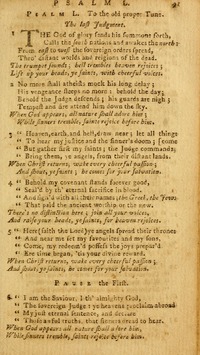 PSALM L. 91
PSALM L. To the old proper Tune.
The last Judgment.
THE God of glory sends his summons forth,
Calls the south nations and awakes the north;
From east to west the sovereign orders spread,
Thro' distant worlds and regions of the dead.
The trumpet sounds; hell trembles; heaven rejoices;
Lift up your heads, ye saints, with cheerful voices.
2 No more shall atheists mock his long delay;
His vengeance sleeps no more; behold the day;
Behold the Judge descends; his guards are nigh;
Tempest and fire attend him down the sky.
When God appears, all nature shall adore him;
While sinners tremble, saints rejoice before him.
3 "Heaven, earth, and hell, draw near; let all things
"To hear my justice and the sinner's doom; [come
"But gather first my saints; the Judge commands;
"Bring them, ye angels, from their distant lands.
When Christ returns, wake every cheerful passion;
And shout, ye saints; he comes for your salvation.
4 "Behold my covenant stands for ever good,
"Seal'd by th' eternal sacrifice in blood,
"And sign'd with all their names; the Greek, the Jew,
"That paid the ancient worship or the new.
There's no distinction here; join all your voices,
And raise your heads, ye saints, for heaven rejoices.
5 "Here (saith the Lord) ye angels spread their thrones
"And near me set my favourites and my sons,
"Come, my redeem'd possess the joys prepar'd
"Ere time began, 'tis your divine reward.
When Christ returns, wake every cheerful passion;
And shout, ye saints, he comes for your salvation.
PAUSE the First.
6 "I am the Saviour, I th' almighty God,
"I am the Judge: ye heavens proclaim abroad
"My just eternal sentence, and declare
"Those awful truths, that sinners dread to hear.
When God appears all nature shall adore him,
While sinners tremble, saints rejoice before him.